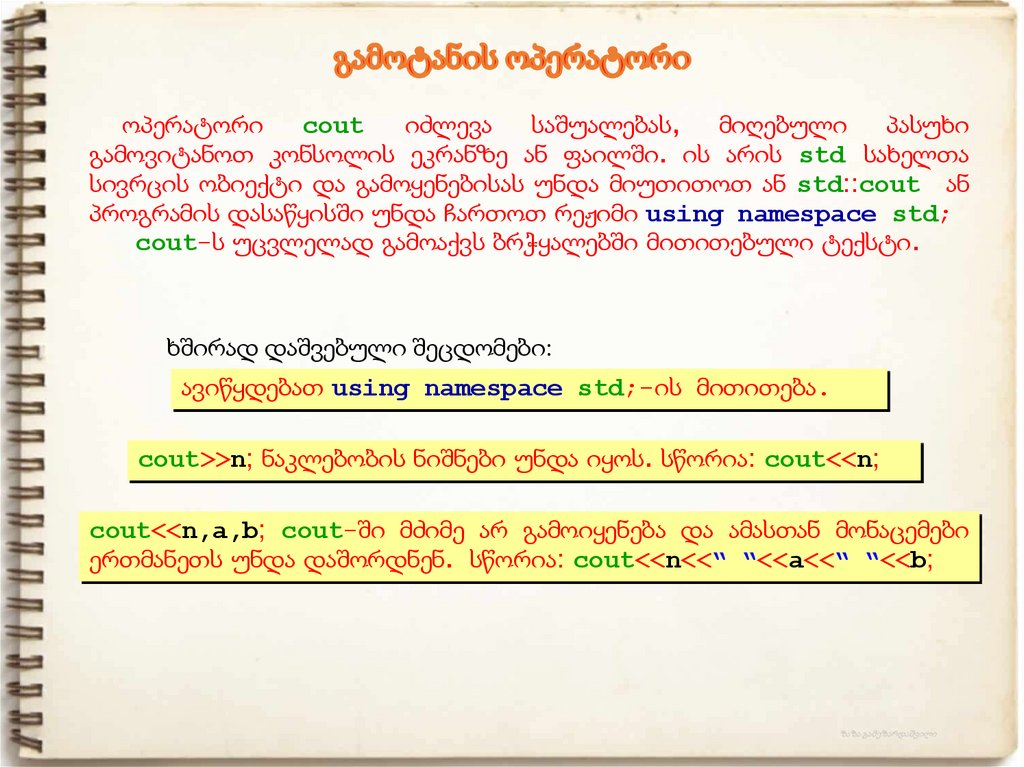 გამოტანის ოპერატორი
ოპერატორი cout იძლევა საშუალებას, მიღებული პასუხი
გამოვიტანოთ კონსოლის ეკრანზე ან ფაილში. ის არის std სახელთა
სივრცის ობიექტი და გამოყენებისას უნდა მიუთითოთ ან std::cout ან
პროგრამის დასაწყისში უნდა ჩართოთ რეჟიმი using namespace std;
cout-ს უცვლელად გამოაქვს ბრჭყალებში მითითებული ტექსტი.
ხშირად დაშვებული შეცდომები:
ავიწყდებათ using namespace std;-ის მითითება.
cout>>n; ნაკლებობის ნიშნები უნდა იყოს. სწორია: cout<<n;
cout<<n,a,b; cout-ში მძიმე არ გამოიყენება და ამასთან მონაცემები
ერთმანეთს უნდა დაშორდნენ. სწორია: cout<<n<<“ “<<a<<“ “<<b;